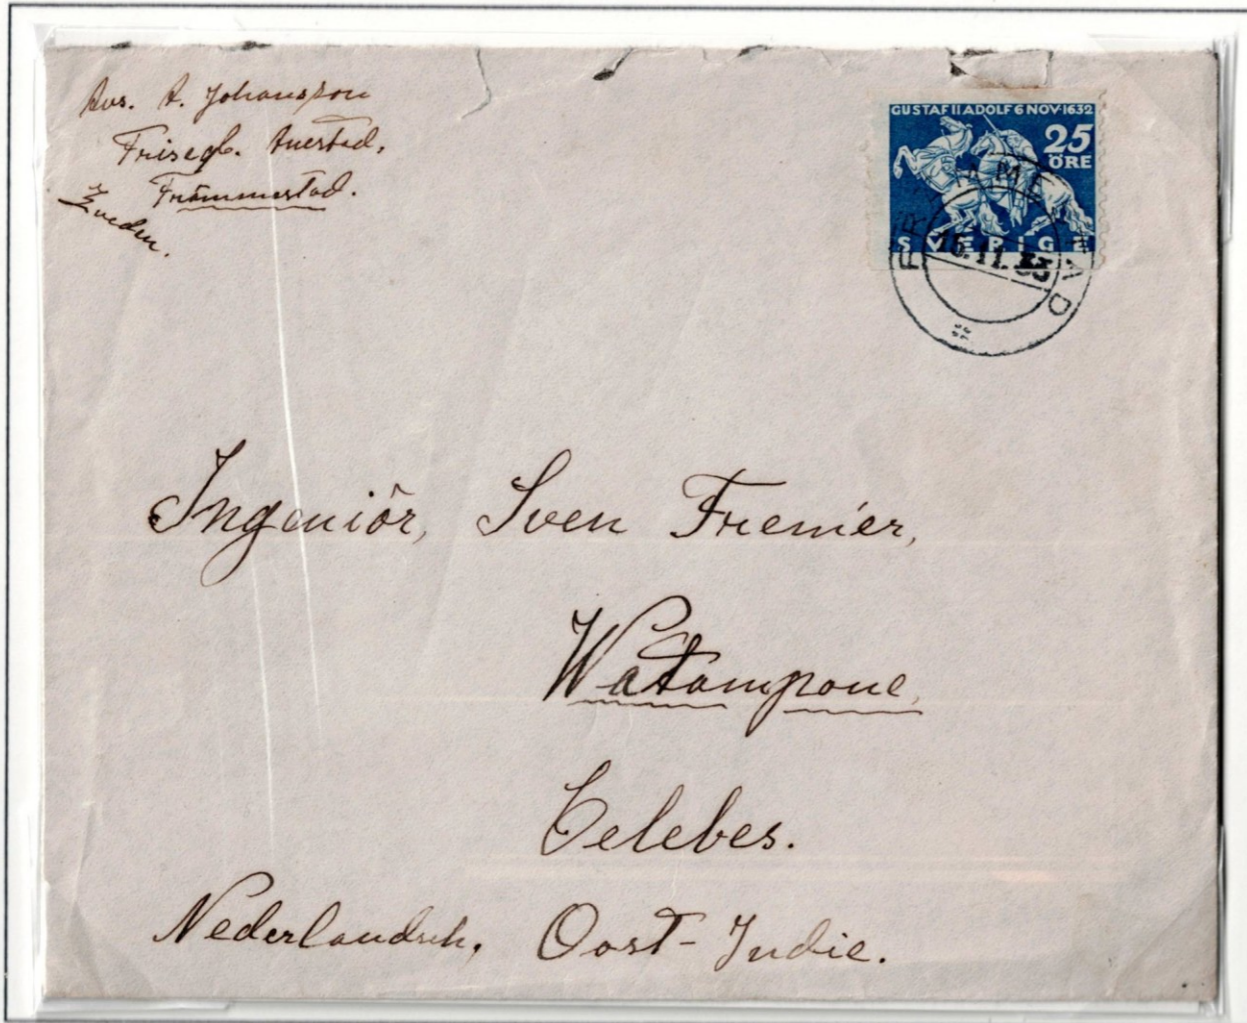 Avs. A. Johansson
Frisegb. Anestad.
Främmestad.
Zveden.
GUSTAF II ADOLF 6 NOV·1632
25
ÖRE
SVERIGE
FRÄMMESTAD
15.11.33
Ingeniör, Sven Fremér,
Watampone,
Celebes.
Nederlandsch, Oost-Indie.